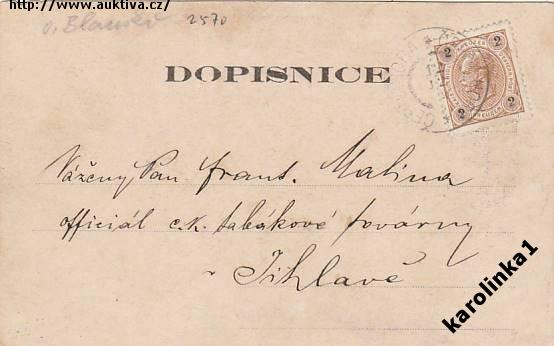 http://www.auktiva.cz/
o. Blansko
2570
DOPISNICE
2 2
2 2
Vážený Pan frant. Malina
officiál c.k. tabákové továrny
v Jihlavě
karolinka1